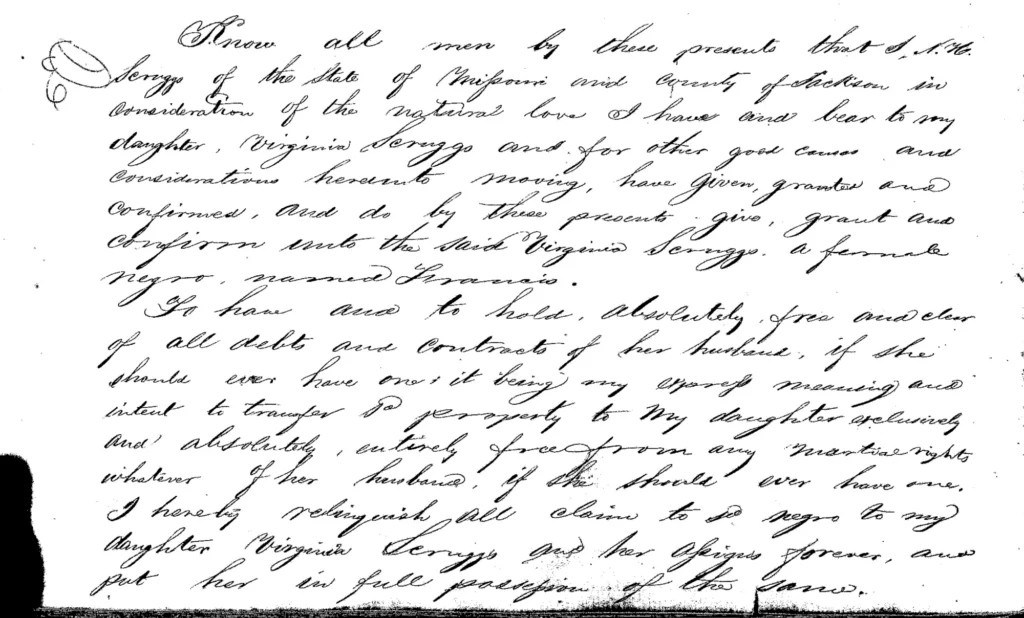 Know all men by these presents that I, N. H.
Scruggs of the State of Missouri and County of Jackson in
consideration of the natural love I have and bear to my
daughter, Virginia Scruggs and for other good causes and
considerations hereunto moving, have given, granted and
confirmed, and do by these presents give, grant and
confirm unto the said Virginia Scruggs, a female
negro, named Francis.
To have and to hold, absolutely, free and clear
of all debts and contracts of her husband, if she
should ever have one; it being my express meaning and
intent to transfer sd property to my daughter exclusively
and absolutely, entirely free from any martial rights
whatever of her husband, if she should ever have one.
I hereby relinquish all claim to sd negro to my
daughter Virginia Scruggs and her assigns forever, and
put her in full possession of the same.